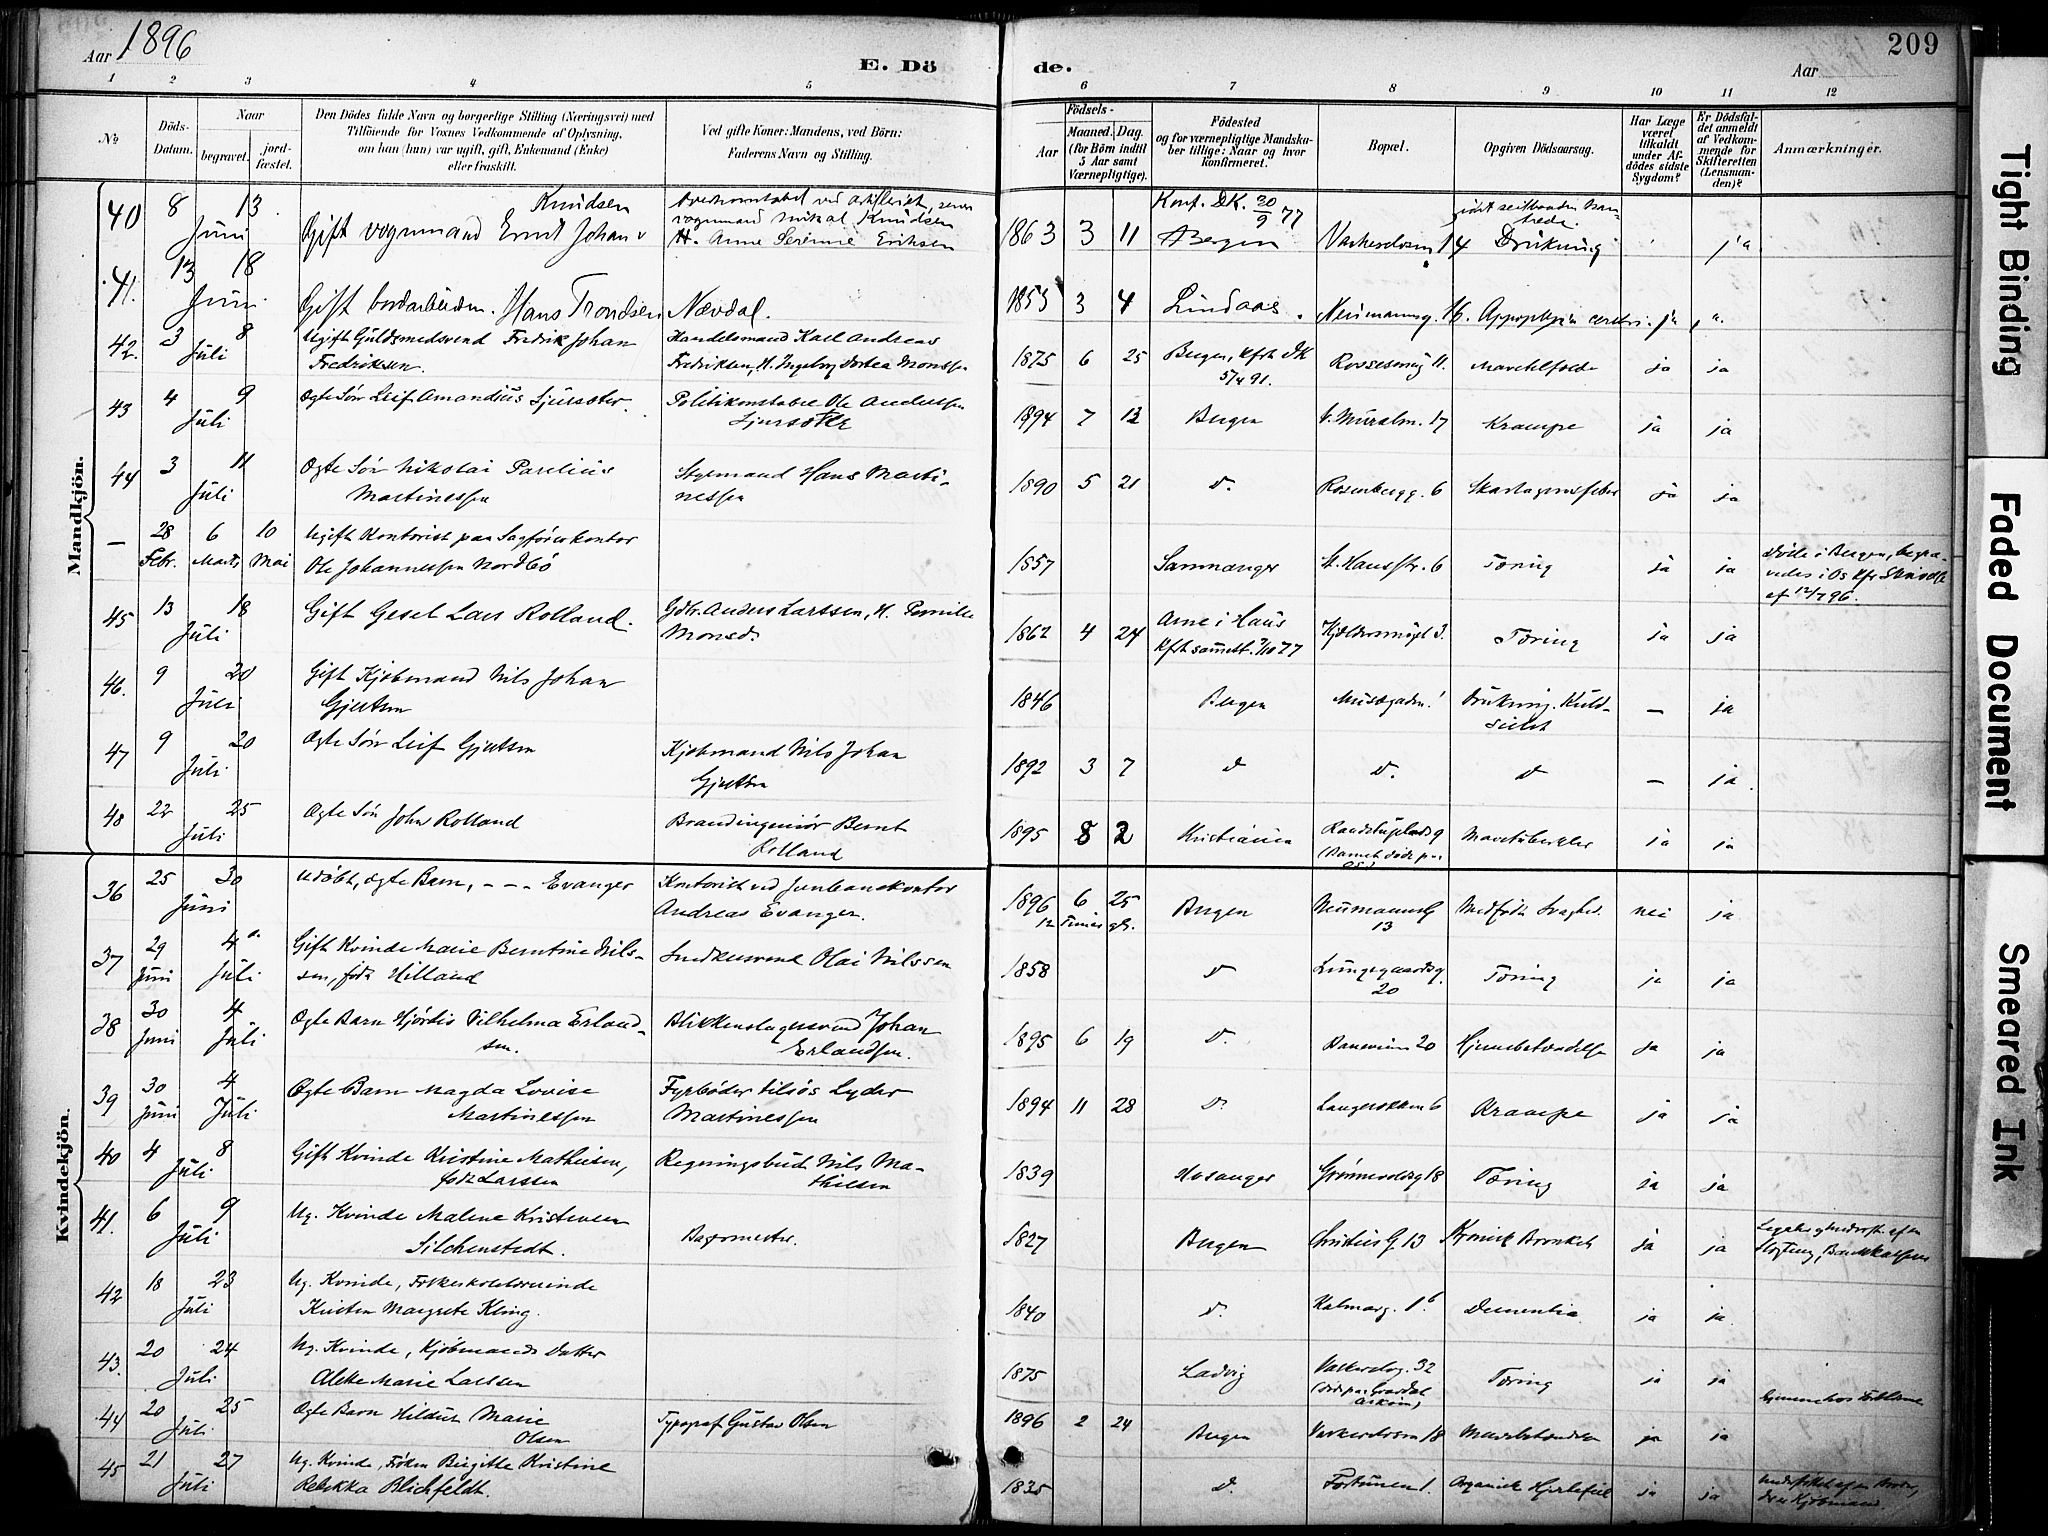 Aar 1896
E. Dö
de.
Aar
209
1 2 3 4 5 6 7 8 9 10 11 12
No
Döds-Datum.
Naar
begravet.
jordfæstet.
Den Dödes fulde Navn og borgerlige Stilling (Næringsvei) med
Tilföiende for Voxnes Vedkommende af Oplysning,
om han (hun) var ugift, gift, Enkemand (Enke)
eller fraskilt.
Ved gifte Koner: Mandens, ved Börn:
Faderens Navn og Stilling.
Födsels-
Aar
Maaned. Dag.
(for Börn indtil
5 Aar samt
Værnepligtige).
Födested
og for værnepligtige Mandskaber
tillige: Naar og hvor
konfirmeret.
Bopæl.
Opgiven Dödsaarsag.
Har Læge
været
tilkaldt
under Afdödes
sidste
Sygdom?
Er Dödsfaldet
anmeldt
af Vedkommende
for
Skifteretten
(Lensmanden)?
Anmærkninger.
Mandkjön.
40 8 13 Juni Gift vognmand Ernst Johan Knudsen
vognmand Mikal Knudsen
H. Anne Serine Eriksen
1863 3 11 Konf. DK. 30/9 77
Bergen 14 Drukning ja
41. 13 18 Juni Gift Hans Trondsen Nævdal. 1853 3 4 Lindaas Neumannsg. 16. Appoplexia cerebri ja
42. 3 8 Juli Ugift Guldsmedsvend Fredrik Johan
Fredriksen. Handelsmand Karl Andreas
Fredriksen, H. Ingeborg Dortea Monssen
1875 6 25 Bergen, Kfrt DK
5/4 91. 11. ja ja
43 4 9 Juli Ægte Søn Leif Amandius Ljursøter. Politikonstabel Ole Anderssen
1894 7 13 Bergen 17 Krampe ja ja
44 3 11 Juli Ægte Søn Nikolai Parelius
Martinessen Styrmand Hans Martinessen
1890 5 21 d. Rosenbergg. 6 Skarlagensfeber ja ja
— 28 Febr. 6 Marts 10 Mai Ugift Kontorist paa Sagførerkontor
Ole Johannessen Nordbø
1857 Samnanger St. Hansstr. 6 Tæring ja ja
Døde i Bergen, begravedes
i Os
af 12/7 96.
45 13 18 Juli Gift Gesel Lars Rolland. Gdbr. Anders Larssen, H. Pernille
Monsd.
1862 4 24 Arne i Haus
Kfrt sammest. 7/10 77 3. Tæring ja ja
46. 9 20 Juli Gift Kjøbmand Nils Johan
Gjertsen
1846 Bergen 1 Drukning. — ja
47 9 20 Juli Ægte Søn Leif Gjertsen Kjøbmand Nils Johan
Gjertsen
1892 3 7 d d. d — ja
48 22 25 Juli Ægte Søn John Rolland Brandingeniør Bernt
Rolland
1895 8 2 Kristiania Mavetuberkler ja ja
Kvindekjön.
36 25 30 Juni Udøbt, ægte Barn, — — — Evanger Kontorist ved Jernbanekontor
Andreas Evanger.
1896 6 25
12 Timer gl. Bergen Neumannsg
13 Medfødt Svaghed. nei ja
37 29 Juni 4 Juli Gift Kvinde Marie Berntine Nilssen,
født Hilland Snedkersvend Olai Nilssen
1858 d Lungegaardsg.
20 Tæring ja ja
38 30 Juni 4 Juli Ægte Barn Hjørdis Vilhelma Erlandsen.
Blikkenslagersvend Johan
Erlandsen.
1895 6 19 d. 20 Hjernebetændelse ja ja
39 30 Juni 4 Juli Ægte Barn Magda Lovise
Martinessen Fyrbøder tilsøs Lyder
Martinessen
1894 11 28 d. 6 Krampe ja ja
40 4 8 Juli Gift Kvinde Kristine Mathiesen,
født Larssen Regningsbud Nils Mathiesen
1839 Hosanger 18 Tæring ja ja
41. 6 9 Juli Ug. Kvinde Malene Kristensen
Silchenstedt. Bagermester.
1827 Bergen Christies G. 13 Kronisk Bronkit ja ja
42 18 23 Juli Ug. Kvinde, Folkeskolelærerinde
Kirsten Margrete Kling.
1840 d. Kalmarg. 1 b Dementia ja ja
43. 20 24 Juli Ug. Kvinde, Kjøbmands Datter
Alette Marie Larssen
1875 Ladvig 32 Tæring ja ja
44 20 25 Juli Ægte Barn Hildur Marie
Olsen Typograf Gustav Olsen
1896 2 24 Bergen 18 Mavebetændelse ja ja
45 21 27 Juli Ug. Kvinde, Frøken Birgitte Kristine
Rebekka Blichfeldt.
1835 d. Fortunen 1. Organisk Hjertefeil ja ja
Tight Binding
Faded Document
Smeared Ink